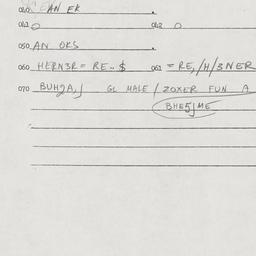 040 EAN EK
041 O 042 O
050 AN OKS
060 HERN3R = RE-$ 061 = RE,/H/3NER
070 BUH2A,J GL MALE / ZOXER FUN A
BHE5JME